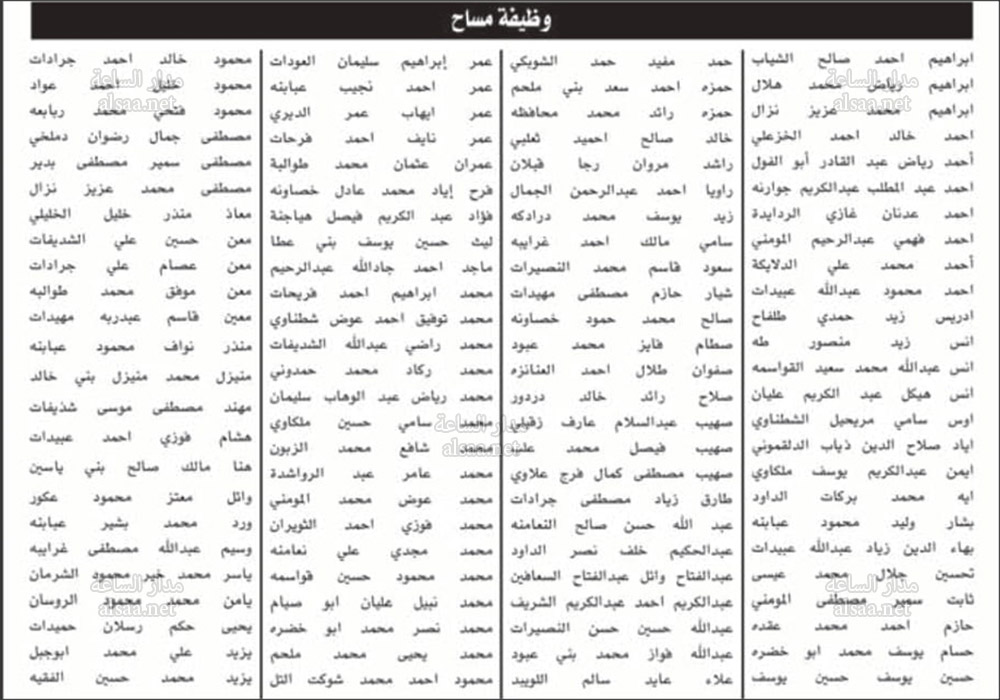 وظيفة مساح
ابراهيم احمد صالح الشياب
ابراهيم رياض محمد هلال
ابراهيم محمد عزيز نزال
احمد خالد احمد الخزعلي
أحمد رياض عبد القادر أبو الفول
احمد عبد المطلب عبدالكريم جوارنه
احمد عدنان غازي الردايدة
احمد فهمي عبدالرحيم المومني
أحمد محمد علي الدلايكة
احمد محمود عبدالله عبيدات
ادريس زيد حمدي طلفاح
انس زيد منصور طه
انس عبدالله محمد سعيد القواسمه
انس هيكل عبد الكريم عليان
اوس سامي مريحيل الشطناوي
اياد صلاح الدين ذياب الدلقموني
ايمن عبدالكريم يوسف ملكاوي
ايه محمد بركات الداود
بشار وليد محمود عبابنه
بهاء الدين زياد عبدالله عبيدات
تحسين جلال محمد عيسى
ثابت سمير مصطفى المومني
حازم احمد محمد عقده
حسام يوسف محمد ابو خضره
حسين يوسف حسين يوسف
حمد مفيد حمد الشويكي
حمزه احمد سعد بني ملحم
حمزه رائد محمد محافظه
خالد صالح احميد ثعلبي
راشد مروان رجا قبلان
راويا احمد عبدالرحمن الجمال
زيد يوسف محمد درادكه
سامي مالك احمد غرايبه
سعود قاسم محمد النصيرات
شيار حازم مصطفى مهيدات
صالح محمد حمود خصاونه
صطام فايز محمد عبود
صفوان طلال احمد العنانزه
صلاح رائد خالد دردور
صهيب عبدالسلام عارف زقيلي
صهيب فيصل محمد علي
صهيب مصطفى كمال فرج علاوي
طارق زياد مصطفى جرادات
عبد الله حسن صالح النعامنه
عبدالحكيم خلف نصر الداود
عبدالفتاح وائل عبدالفتاح السعافين
عبدالكريم احمد عبدالكريم الشريف
عبدالله حسين حسن النصيرات
عبدالله فواز محمد بني عبود
علاء عايد سالم اللوبيد
عمر إبراهيم سليمان العودات
عمر احمد نجيب عبابنه
عمر ايهاب عمر الديري
عمر نايف احمد فرحات
عمران عثمان محمد طوالبة
فرح إياد محمد عادل خصاونه
فؤاد عبد الكريم فيصل هياجنة
ليث حسين يوسف بني عطا
ماجد احمد جادالله عبدالرحيم
محمد ابراهيم احمد فريحات
محمد توفيق احمد عوض شطناوي
محمد راضي عبدالله الشديفات
محمد ركاد محمد حمدوني
محمد رياض عبد الوهاب سليمان
محمد سامي حسين ملكاوي
محمد شافع محمد الزبون
محمد عامر عبد الرواشدة
محمد عوض محمد المومني
محمد فوزي احمد الثويران
محمد مجدي علي نعامنه
محمد محمود حسين قواسمه
محمد نبيل عليان ابو صيام
محمد نصر محمد ابو خضره
محمد يحيى محمد ملحم
محمود احمد محمد شوكت التل
محمود خالد احمد جرادات
محمود خليل احمد عواد
محمود فتحي محمد ربابعه
مصطفى جمال رضوان دملخي
مصطفى سمير مصطفى بدير
مصطفى محمد عزيز نزال
معاذ منذر خليل الخليلي
معن حسين علي الشديفات
معن عصام علي جرادات
معن موفق محمد طوالبه
معين قاسم عبدربه مهيدات
منذر نواف محمود عبابنه
منيزل محمد منيزل بني خالد
مهند مصطفى موسى شذيفات
هشام فوزي احمد عبيدات
هنا مالك صالح بني ياسين
وائل معتز محمود عكور
ورد محمد بشير عبابنه
وسيم عبدالله مصطفى غرايبه
ياسر محمد خير محمود الشرمان
يامن محمد محمود الروسان
يحيى حكم رسلان حميدات
يزيد علي محمد ابوجبل
يزيد محمد حسين الفقيه
مدار الساعة
alsaa.net
مدار الساعة
alsaa.net
مدار الساعة
alsaa.net
مدار الساعة
alsaa.net
مدار الساعة
alsaa.net